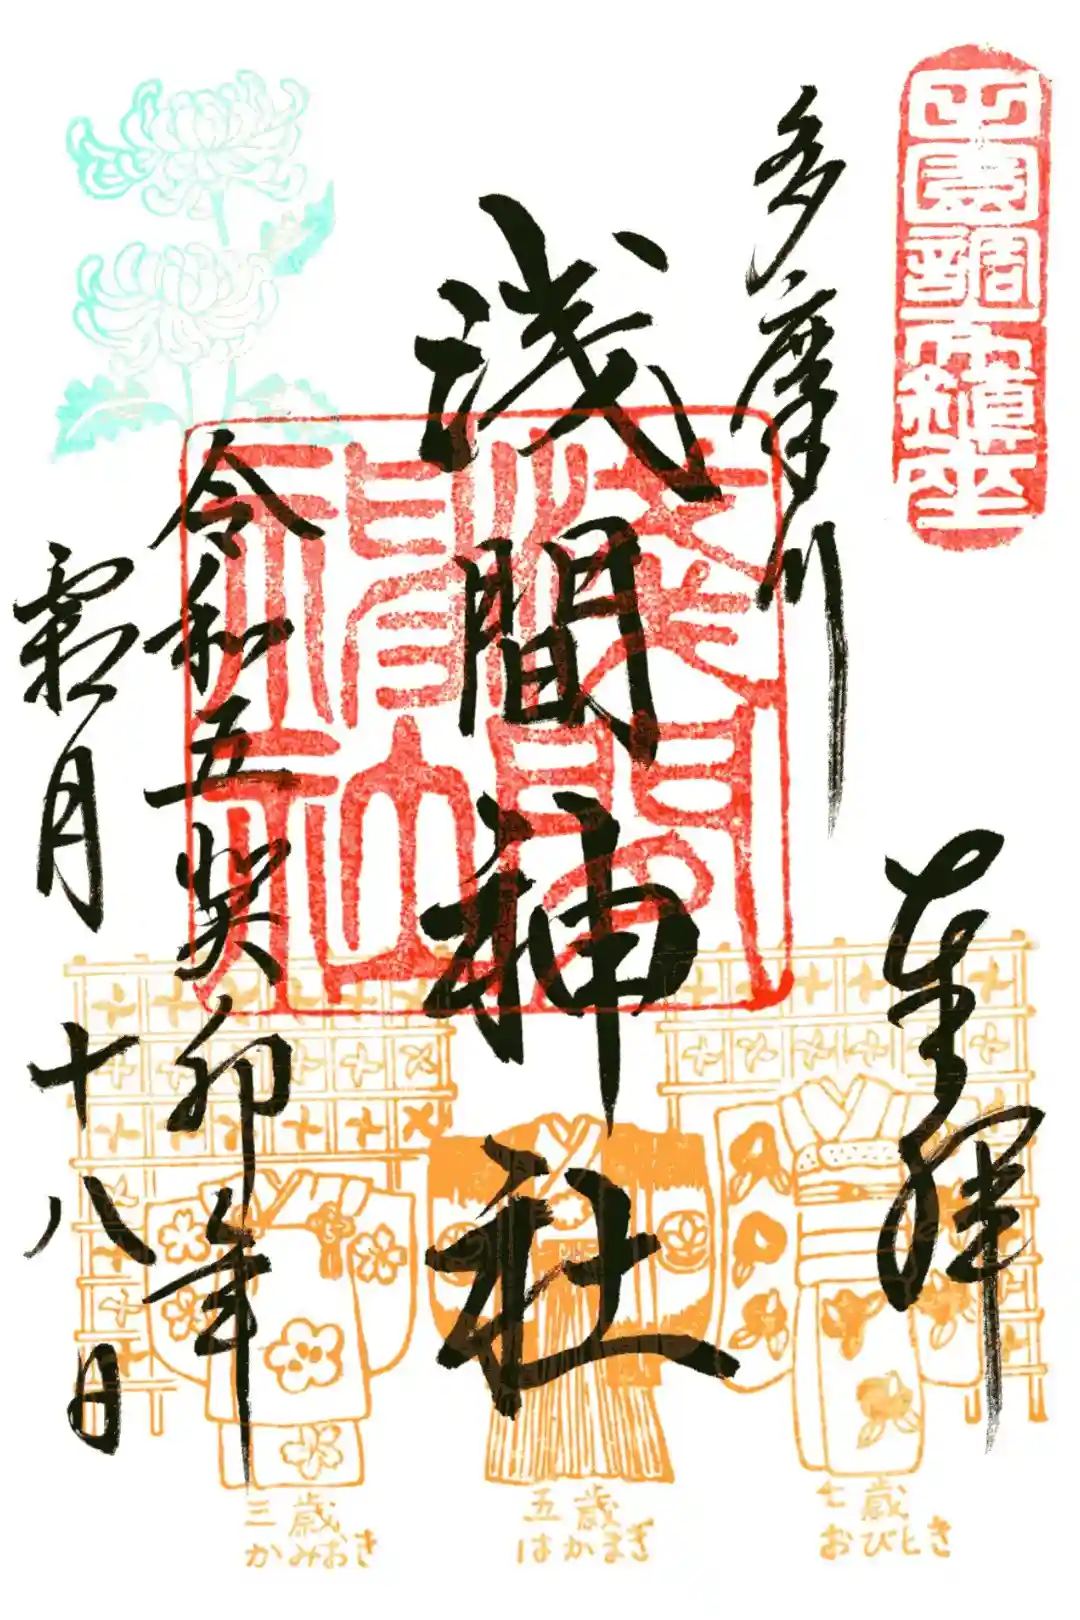 田園調布鎮座
奉拝
多摩川
浅間神社
令和五癸卯年
霜月十八日
浅間神社
三歳
かみおき
五歳
はかまぎ
七歳
おびとき